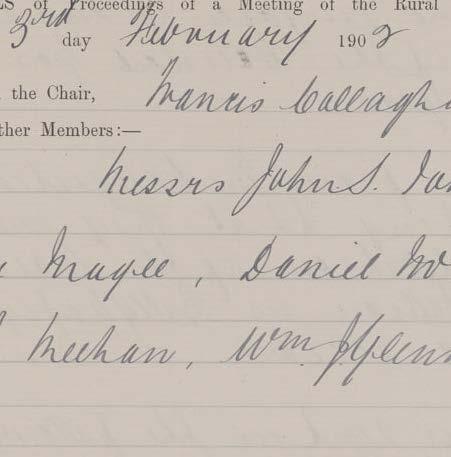 LS of Proceedings of a Meeting of the Rural
3rd day February 1902
the Chair, Francis Callagh
ther Members:—
Messrs John S.
Magee, Daniel
Meehan, Wm. J. Glenn